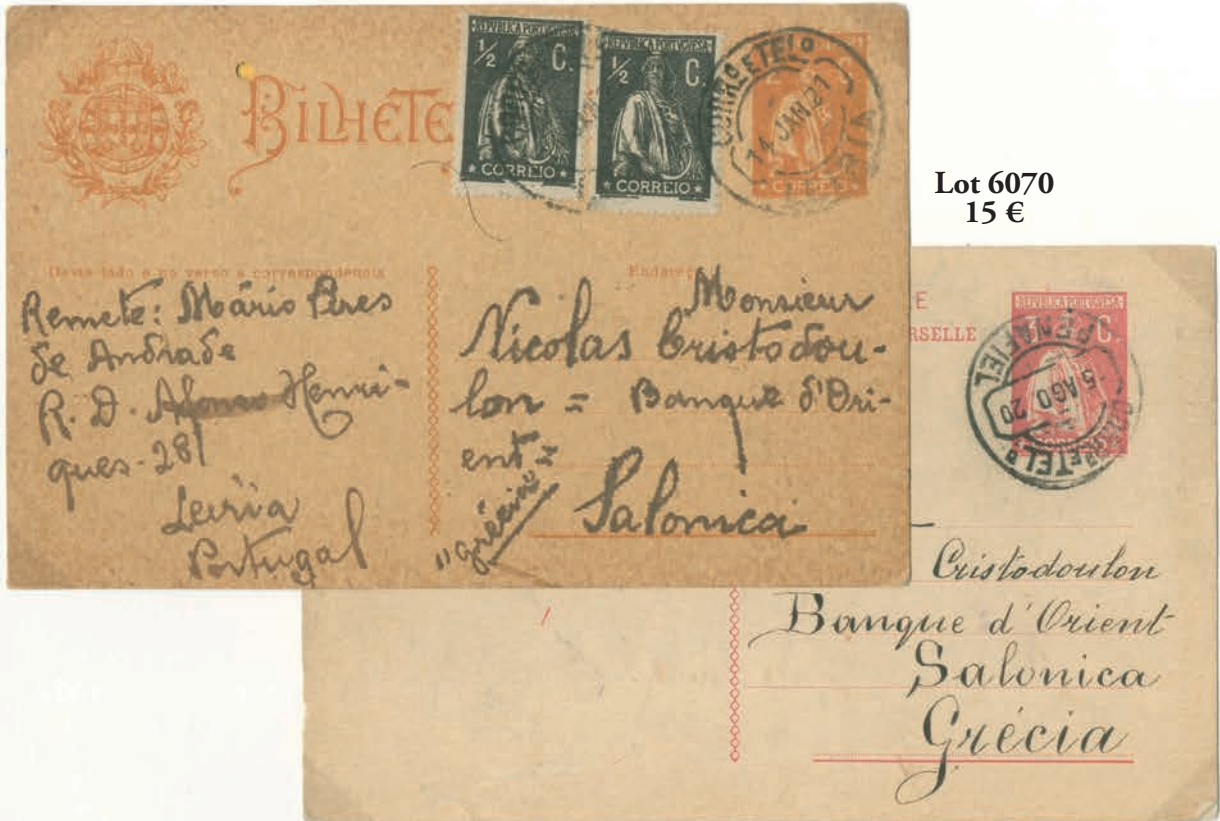 BILHETE
REPVBLICA PORTVGVESA
½ C.
CORREIO
REPVBLICA PORTVGVESA
½ C.
CORREIO
CORR.º E TEL.º
14 JAN. 21
CORREIO
Deste lado e no verso a correspondencia
Endereço
Remete: Mário Pires
de Andrade
R. D. Afonso Henri-
ques - 281
Leiria
Portugal
Monsieur
Nicolas Cristodou-
lon = Banque d'Ori-
ent =
Salonica
"grécia"
Lot 6070
15 €
RSELLE
REPVBLICA PORTVGVESA
3 C.
PENAFIEL
5 AGO 20
CORR.º E TEL.º
Cristodoulon
Banque d'Orient
Salonica
Grécia